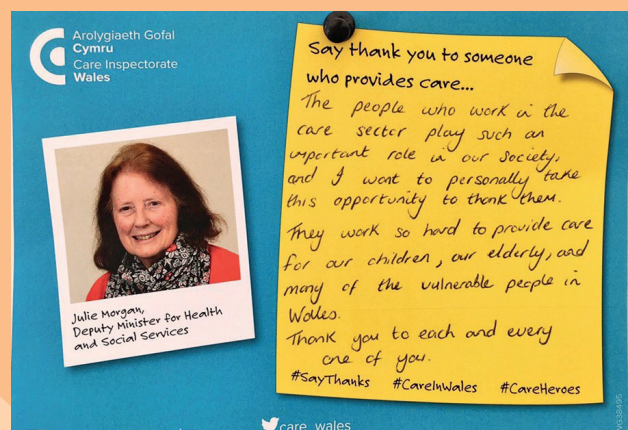 Arolygiaeth Gofal
Cymru
Care Inspectorate
Wales
Julie Morgan,
Deputy Minister for Health
and Social Services
Say thank you to someone
who provides care...
The people who work in the
care sector play such an
important role in our society,
and I want to personally take
this opportunity to thank them.
They work so hard to provide care
for our children, our elderly, and
many of the vulnerable people in
Wales.
Thank you to each and every
one of you.
#SayThanks #CareInWales #CareHeroes
care_wales
WG38495